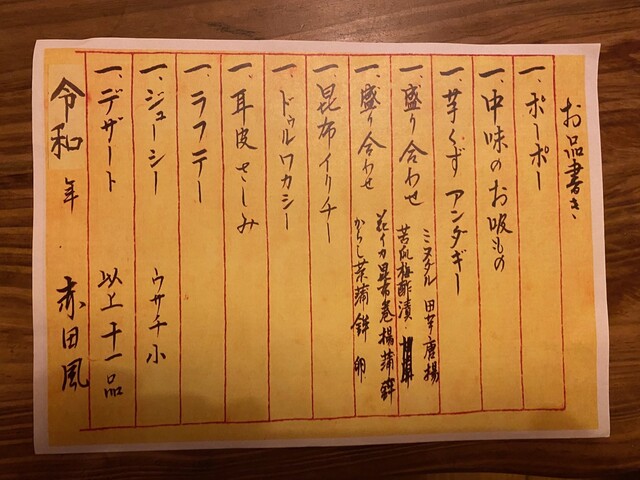 お品書き
一、ポーポー
一、中味のお吸もの
一、芋くず アンダギー
一、盛り合わせ
ミヌダル 田芋唐揚
苦瓜梅酢漬
一、盛り合わせ
花イカ 昆布巻 揚蒲鉾
からし菜蒲鉾 卵
一、昆布イリチー
一、ドゥルワカシー
一、耳皮さしみ
一、ラフテー
一、ジューシー ウサチ小
一、デザート 以上十一品
令和 年 赤田風